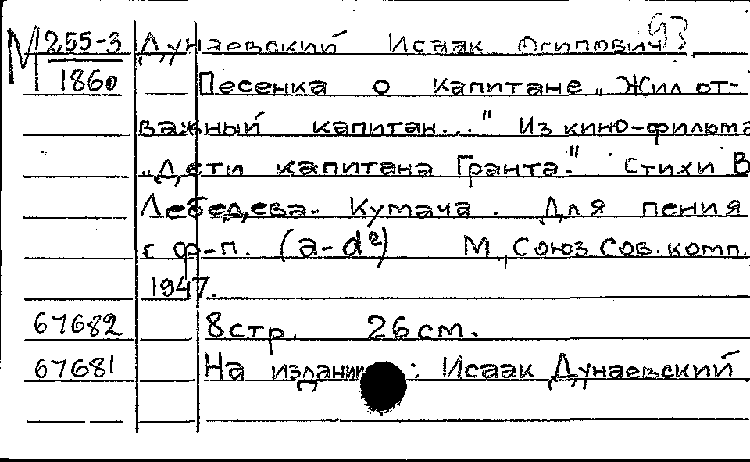 М 255-3 Дунаевский Исаак Осипович 93
1860 Песенка о капитане „Жил от-
важный капитан..." Из кино-фильма
„Дети капитана Гранта." Стихи В
Лебедева-Кумача. Для пения
с ф-п. (a-d²) М., Союз сов. комп.
1947.
67682 8 стр. 26 см.
67681 На издании: Исаак Дунаевский